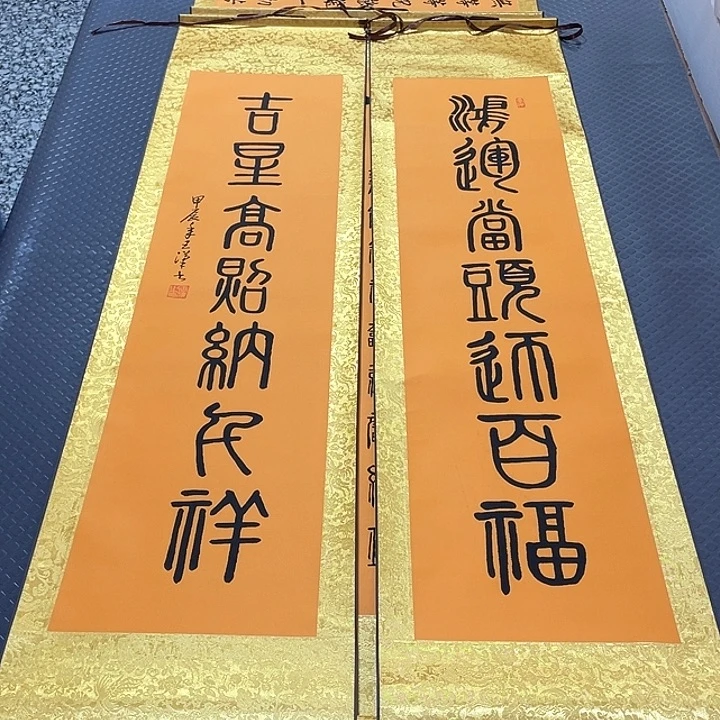 鴻運當頭迎百福
吉星高照納千祥
甲辰年王